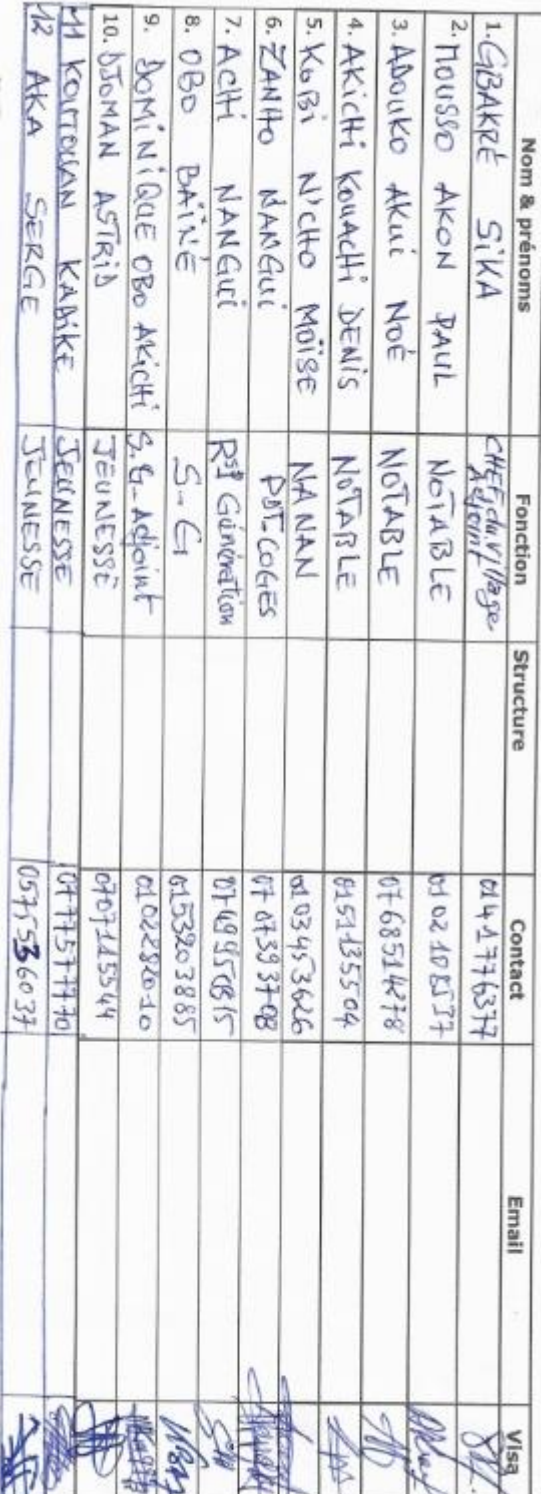 Nom & prénoms Fonction Structure Contact Email Visa
1. GBAKRE SIKA CHEF du village Adjoint 0141776377
2. MOUSSO AKON PAUL NOTABLE 0102108537
3. ADOUKO AKUI NOÉ NOTABLE 0768514278
4. AKICHI KOUACHI DENIS NOTABLE 0151135504
5. KOBI N'CHO MOÏSE NANAN 0103453626
6. ZANHO NANGUI PDT-COGES 0707393708
7. ACHI NANGUI Génération 0749950815
8. OBO BAÏNÉ S-G 0153203885
9. DOMINIQUE OBO AKICHI S.G-Adjoint 0102292010
10. DJOMAN ASTRID JEUNESSE 0707115544
11 KABIKE JEUNESSE 0777577770
12 AKA SERGE JEUNESSE 0575536037